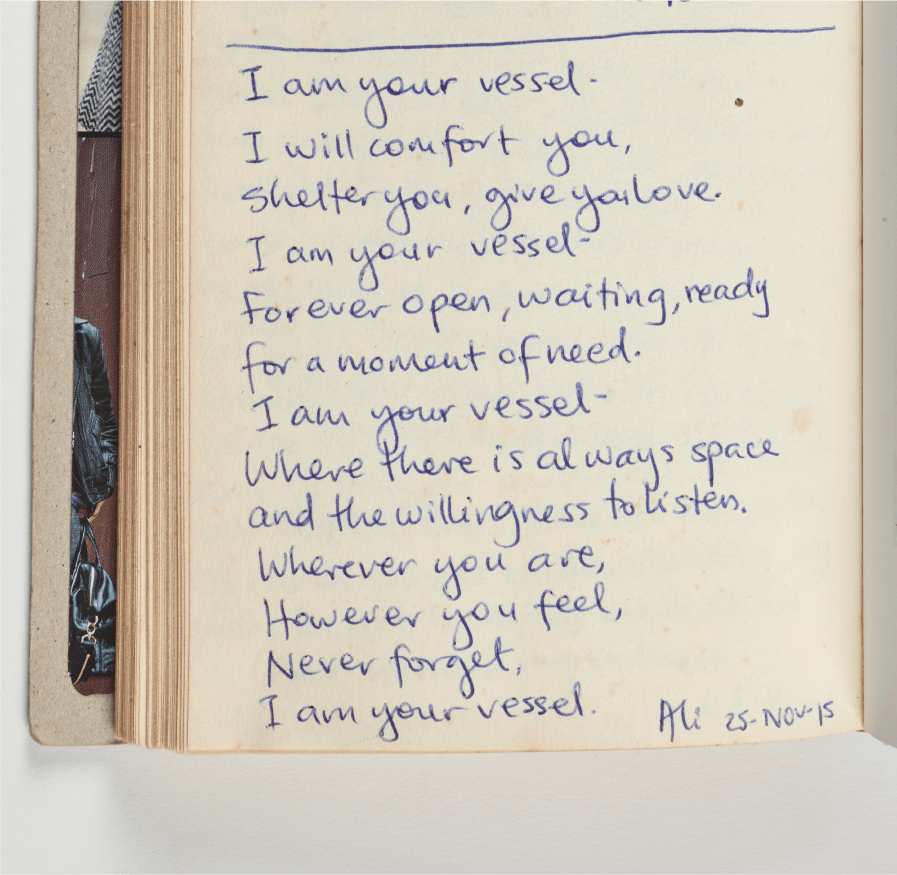 I am your vessel-
I will comfort you,
shelter you, give you love.
I am your vessel-
Forever open, waiting, ready
for a moment of need.
I am your vessel-
Where there is always space
and the willingness to listen.
Wherever you are,
However you feel,
Never forget,
I am your vessel.
Ali 25-NOV-15